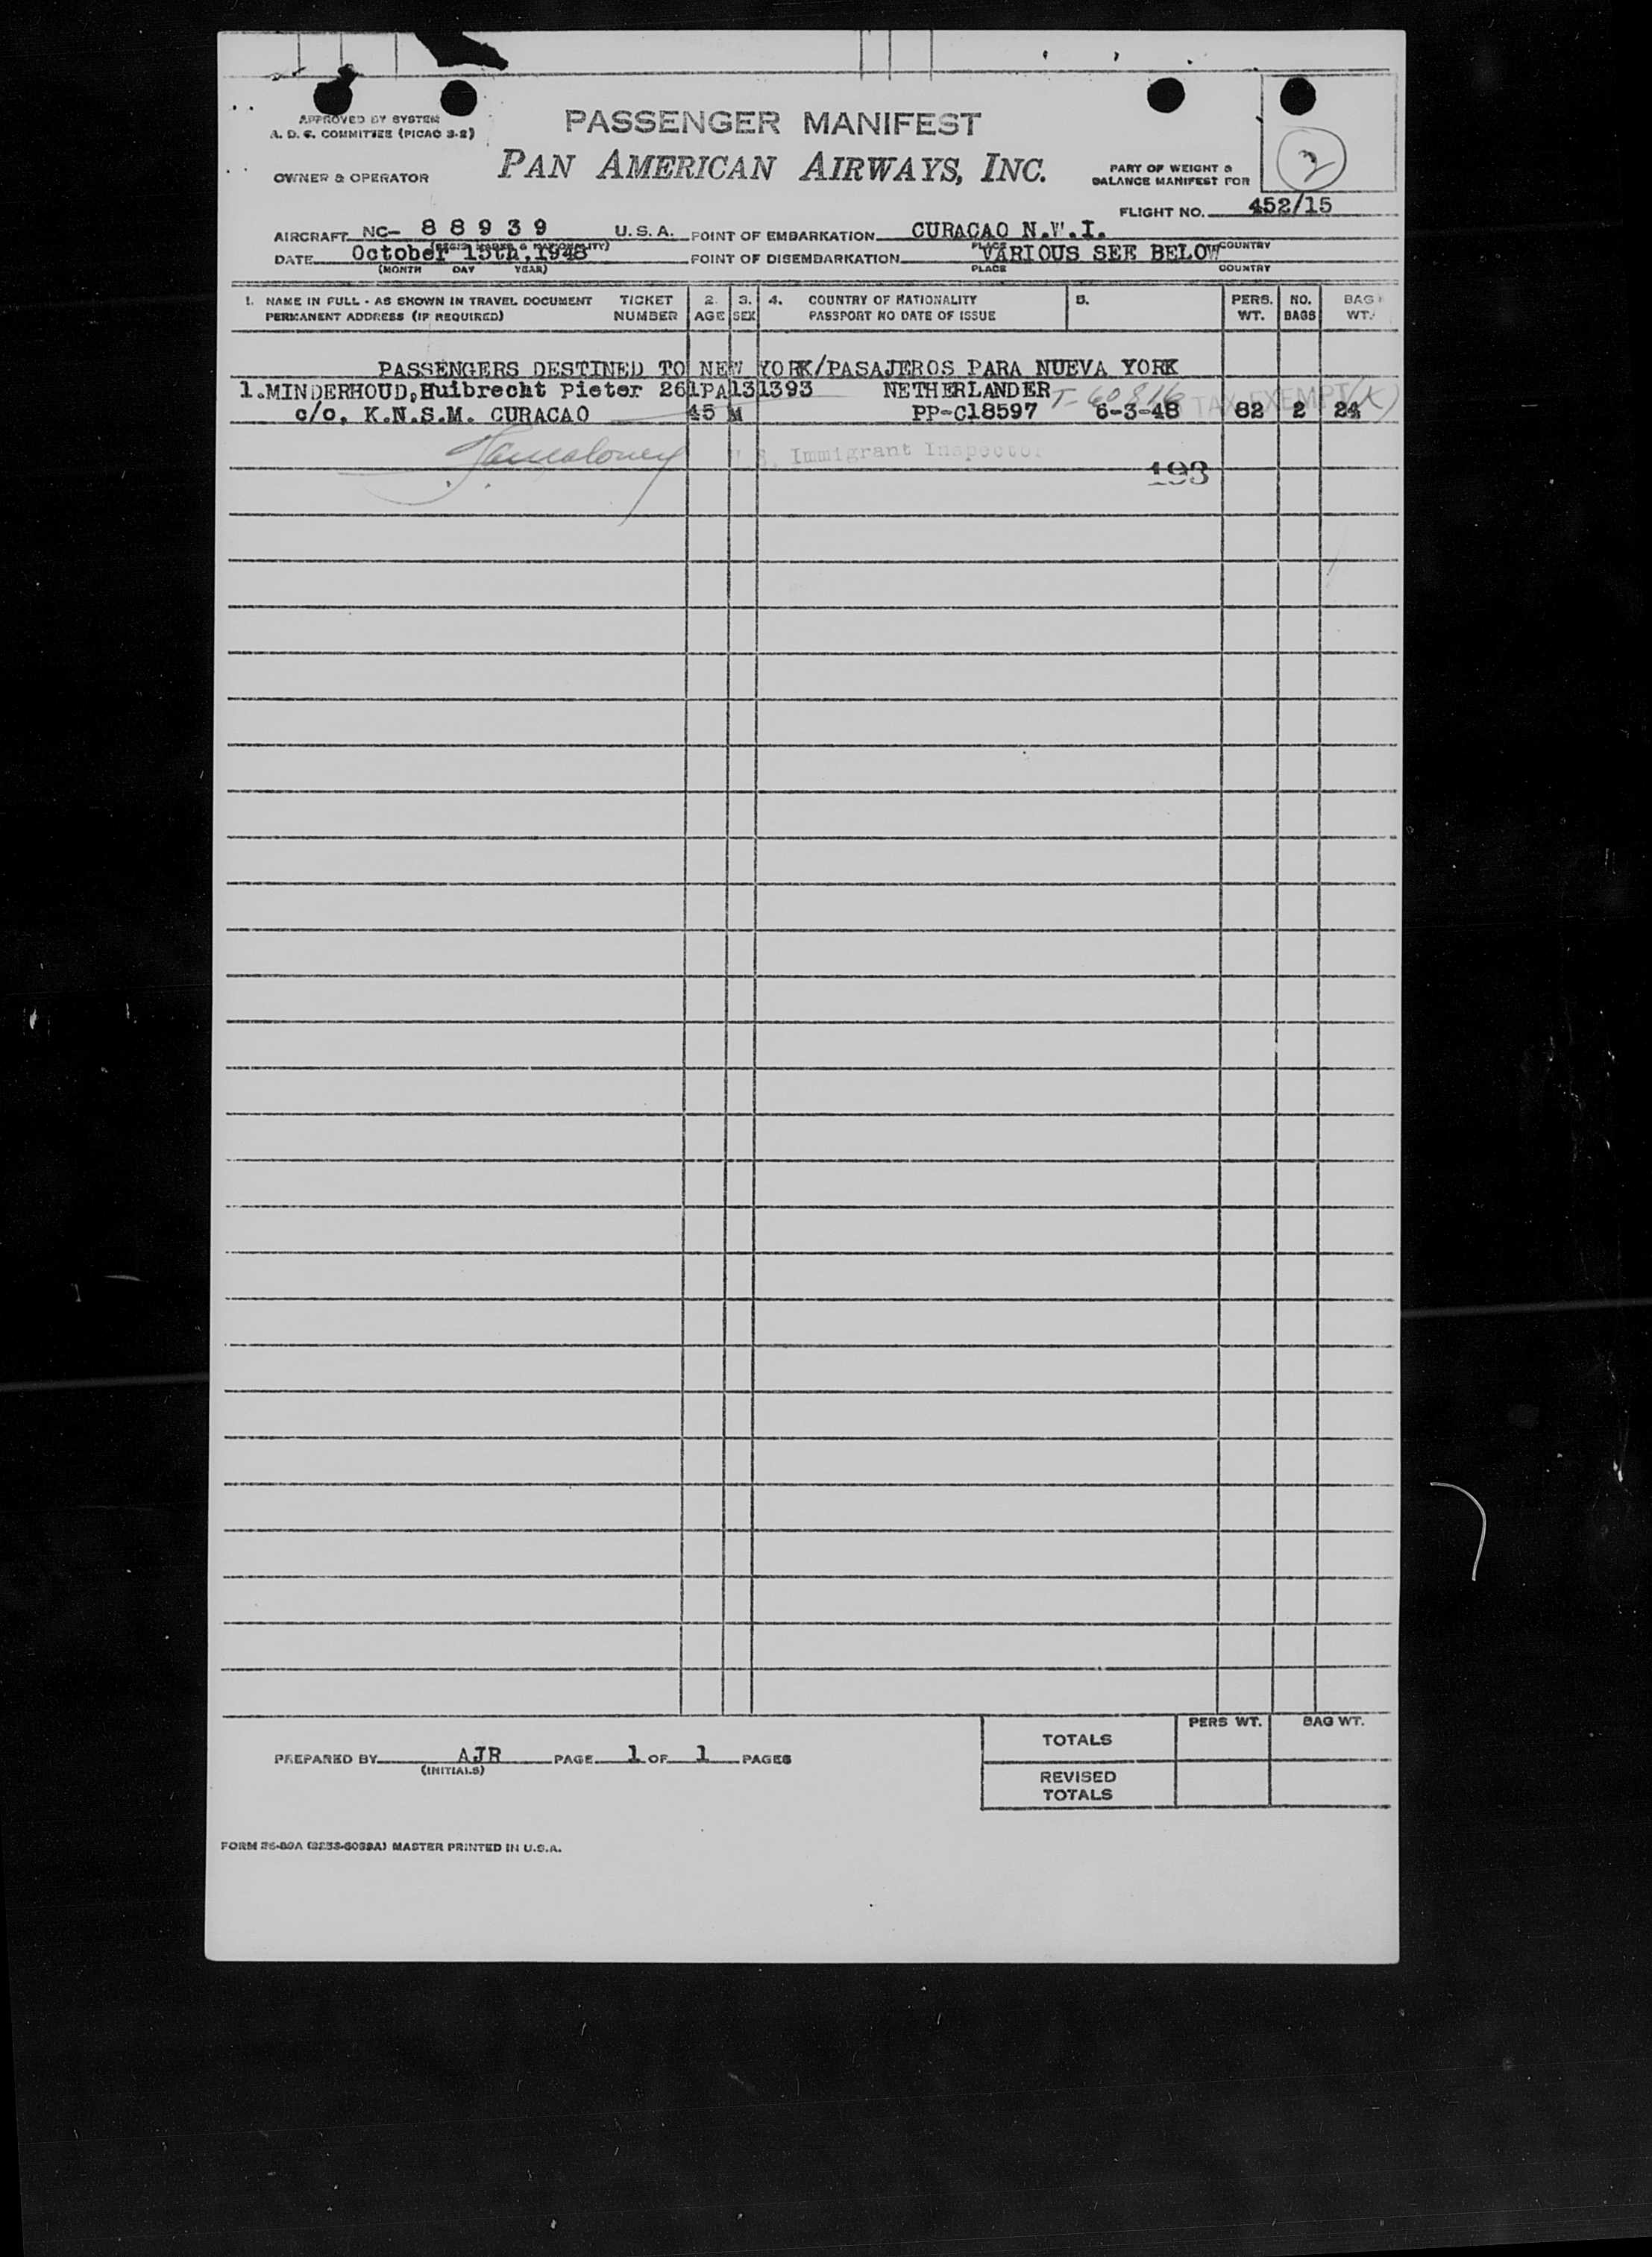 APPROVED BY SYSTEM
A. D. C. COMMITTEE (PICAO 3-2)
PASSENGER MANIFEST
PAN AMERICAN AIRWAYS, INC.
OWNER & OPERATOR
PART OF WEIGHT &
BALANCE MANIFEST FOR
2
FLIGHT NO. 452/15
AIRCRAFT NC- 88939 U.S.A. POINT OF EMBARKATION CURACAO N.W.I.
(REGIS. MARKS & NATIONALITY) PLACE COUNTRY
DATE October 15th, 1948 POINT OF DISEMBARKATION VARIOUS SEE BELOW
(MONTH DAY YEAR) PLACE COUNTRY
1. NAME IN FULL - AS SHOWN IN TRAVEL DOCUMENT TICKET 2. 3. 4. COUNTRY OF NATIONALITY 5. PERS. NO. BAG
PERMANENT ADDRESS (IF REQUIRED) NUMBER AGE SEX PASSPORT NO DATE OF ISSUE WT. BAGS WT.
PASSENGERS DESTINED TO NEW YORK/PASAJEROS PARA NUEVA YORK
1.MINDERHOUD,Huibrecht Pieter 261PA131393 NETHERLANDER T-60816 TAX EXEMPT (K)
c/o, K.N.S.M. CURACAO 45 M PP-C18597 6-3-48 82 2 24
U.S. Immigrant Inspector
193
PERS WT. BAG WT.
TOTALS
PREPARED BY AJR PAGE 1 OF 1 PAGES
(INITIALS)
REVISED
TOTALS
MASTER PRINTED IN U.S.A.